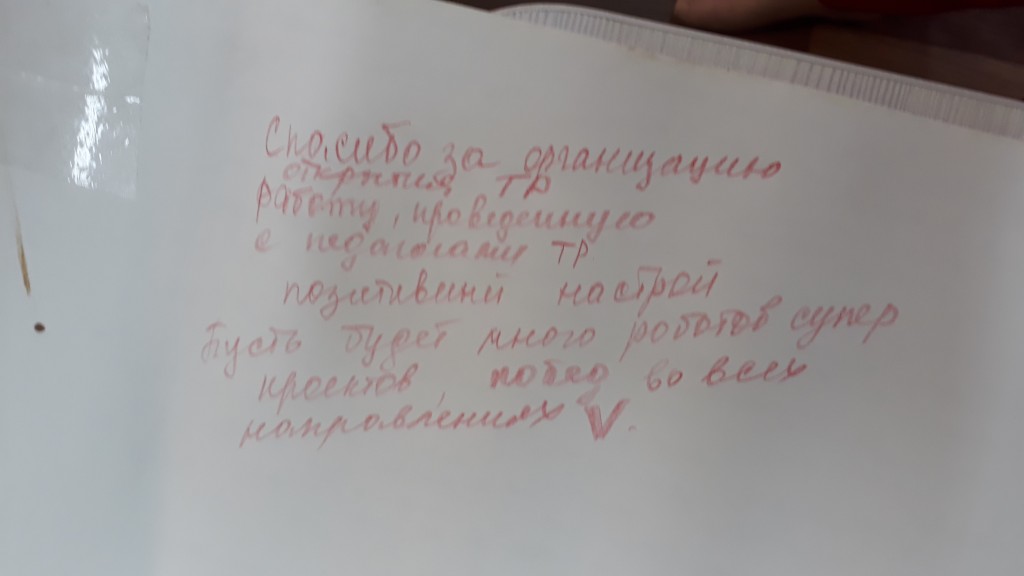 Спасибо за организацию
открытия ТР
работу, проведенную
с педагогами ТР
позитивный настрой
Пусть будет много роботов супер
проектов, побед во всех
направлениях V.